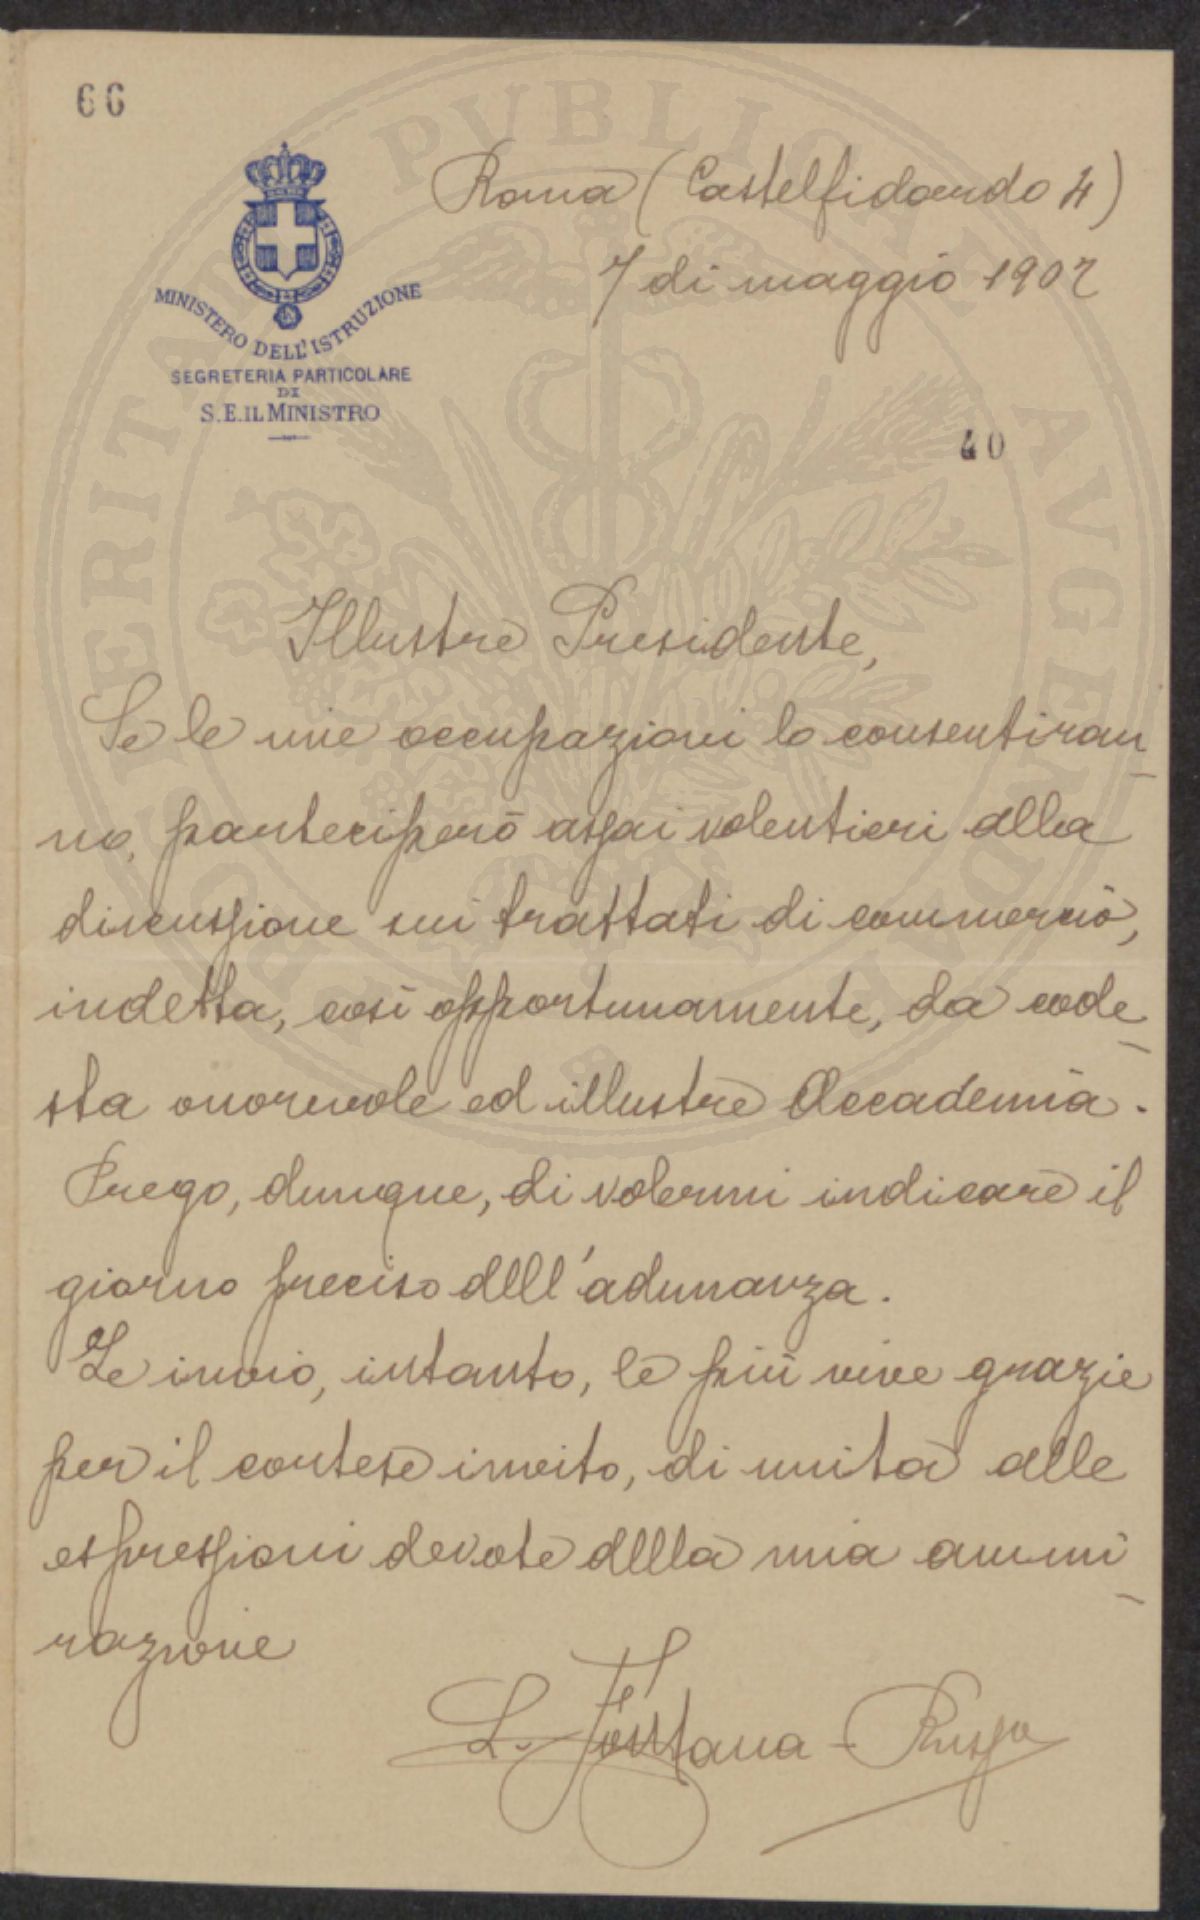 66
Roma (Castelfidardo 4)
7 di maggio 1902
MINISTERO DELL'ISTRUZIONE
SEGRETERIA PARTICOLARE
DI
S.E. IL MINISTRO
40
Illustre Presidente,
Se le mie occupazioni lo consentiran-
no, parteciperò assai volentieri alla
discussione sui trattati di commercio,
indetta, così opportunamente, da code-
sta onorevole ed illustre Accademia.
Prego, dunque, di volermi indicare il
giorno preciso dell'adunanza.
Le invio, intanto, le più vive grazie
per il cortese invito, di unita alle
espressioni devote della mia ammi-
razione
L. Fontana-Russo
PROSPERITATI PUBLICAE AUGENDAE